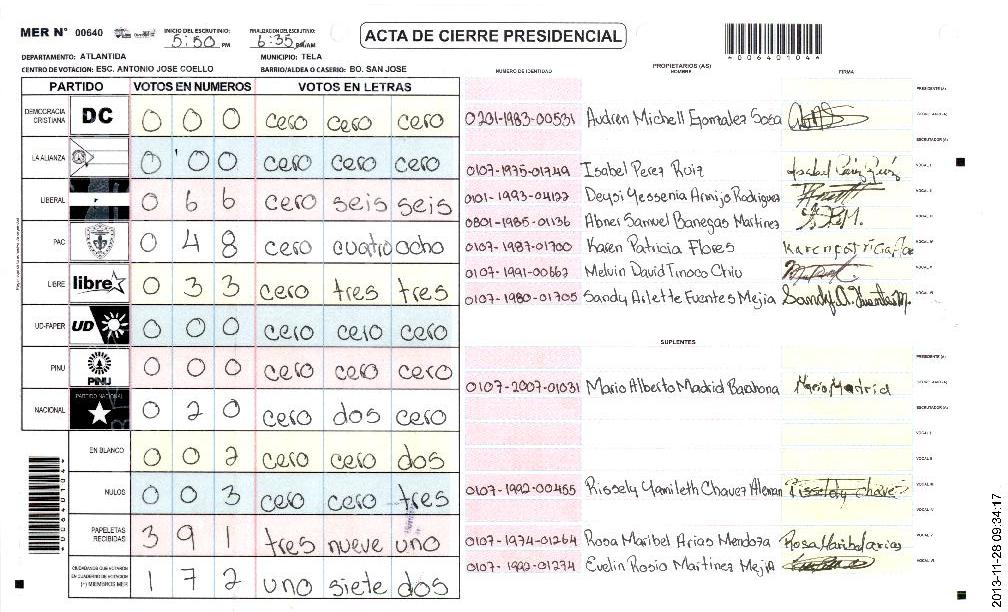 MER N° 00640
INICIO DEL ESCRUTINIO: 5:50 PM
FINALIZACION DEL ESCRUTINIO: 6:35 PM/AM
ACTA DE CIERRE PRESIDENCIAL
*006401044*
DEPARTAMENTO: ATLANTIDA MUNICIPIO: TELA
CENTRO DE VOTACION: ESC. ANTONIO JOSE COELLO BARRIO/ALDEA O CASERIO: BO. SAN JOSE
PARTIDO VOTOS EN NUMEROS VOTOS EN LETRAS
DEMOCRACIA CRISTIANA DC 0 0 0 cero cero cero
LA ALIANZA 0 0 0 cero cero cero
LIBERAL 0 6 6 cero seis seis
PAC 0 4 8 cero cuatro ocho
LIBRE libre 0 3 3 cero tres tres
UD-FAPER UD 0 0 0 cero cero cero
PINU PINU 0 0 0 cero cero cero
NACIONAL PARTIDO NACIONAL 0 2 0 cero dos cero
EN BLANCO 0 0 2 cero cero dos
NULOS 0 0 3 cero cero tres
PAPELETAS RECIBIDAS 3 9 1 tres nueve uno
CIUDADANOS QUE VOTARON EN CUADERNO DE VOTACION (+) MIEMBROS MER 1 7 2 uno siete dos
PROPIETARIOS (AS)
NUMERO DE IDENTIDAD NOMBRE FIRMA
PRESIDENTE (A)
0201-1983-00531 Audren Michell Gonzalez Sosa
ESCRUTADOR (A)
0107-1975-01749 Isabel Perez Ruiz Isabel Pérez Ruiz VOCAL I
0101-1993-04122 Deysi Yessenia Armijo Rodriguez VOCAL II
0801-1985-01136 Abner Samuel Banegas Martinez VOCAL III
0107-1987-01700 Karen Patricia Flores Karen patricia flo VOCAL IV
0107-1991-00662 Melvin David Tinoco Chiu VOCAL V
0107-1980-01705 Sandy Arlette Fuentes Mejia Sandy A. Fuentes M. VOCAL VI
SUPLENTES
PRESIDENTE (A)
0107-2007-01031 Mario Alberto Madrid Barahona Mario Madrid
ESCRUTADOR (A)
VOCAL I
VOCAL II
0107-1992-00455 Rissely Yamileth Chavez Aleman Rissely chavez VOCAL III
VOCAL IV
0107-1974-01264 Rosa Maribel Arias Mendoza Rosa Maribel arias VOCAL V
0107-1992-01274 Evelin Rosio Martinez Mejia VOCAL VI
2013-11-28 09:34:17